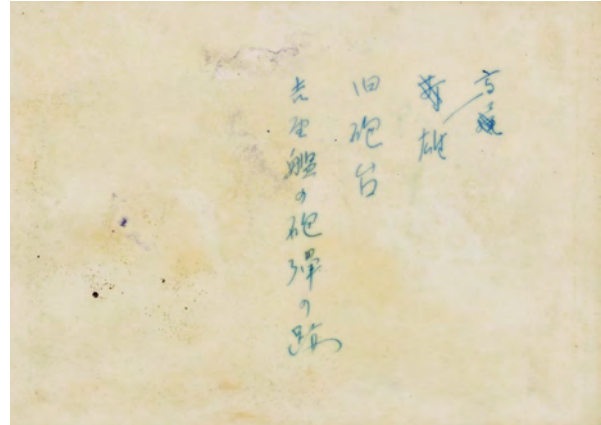 高
雄
旧砲台
吉野艦の砲弾の跡